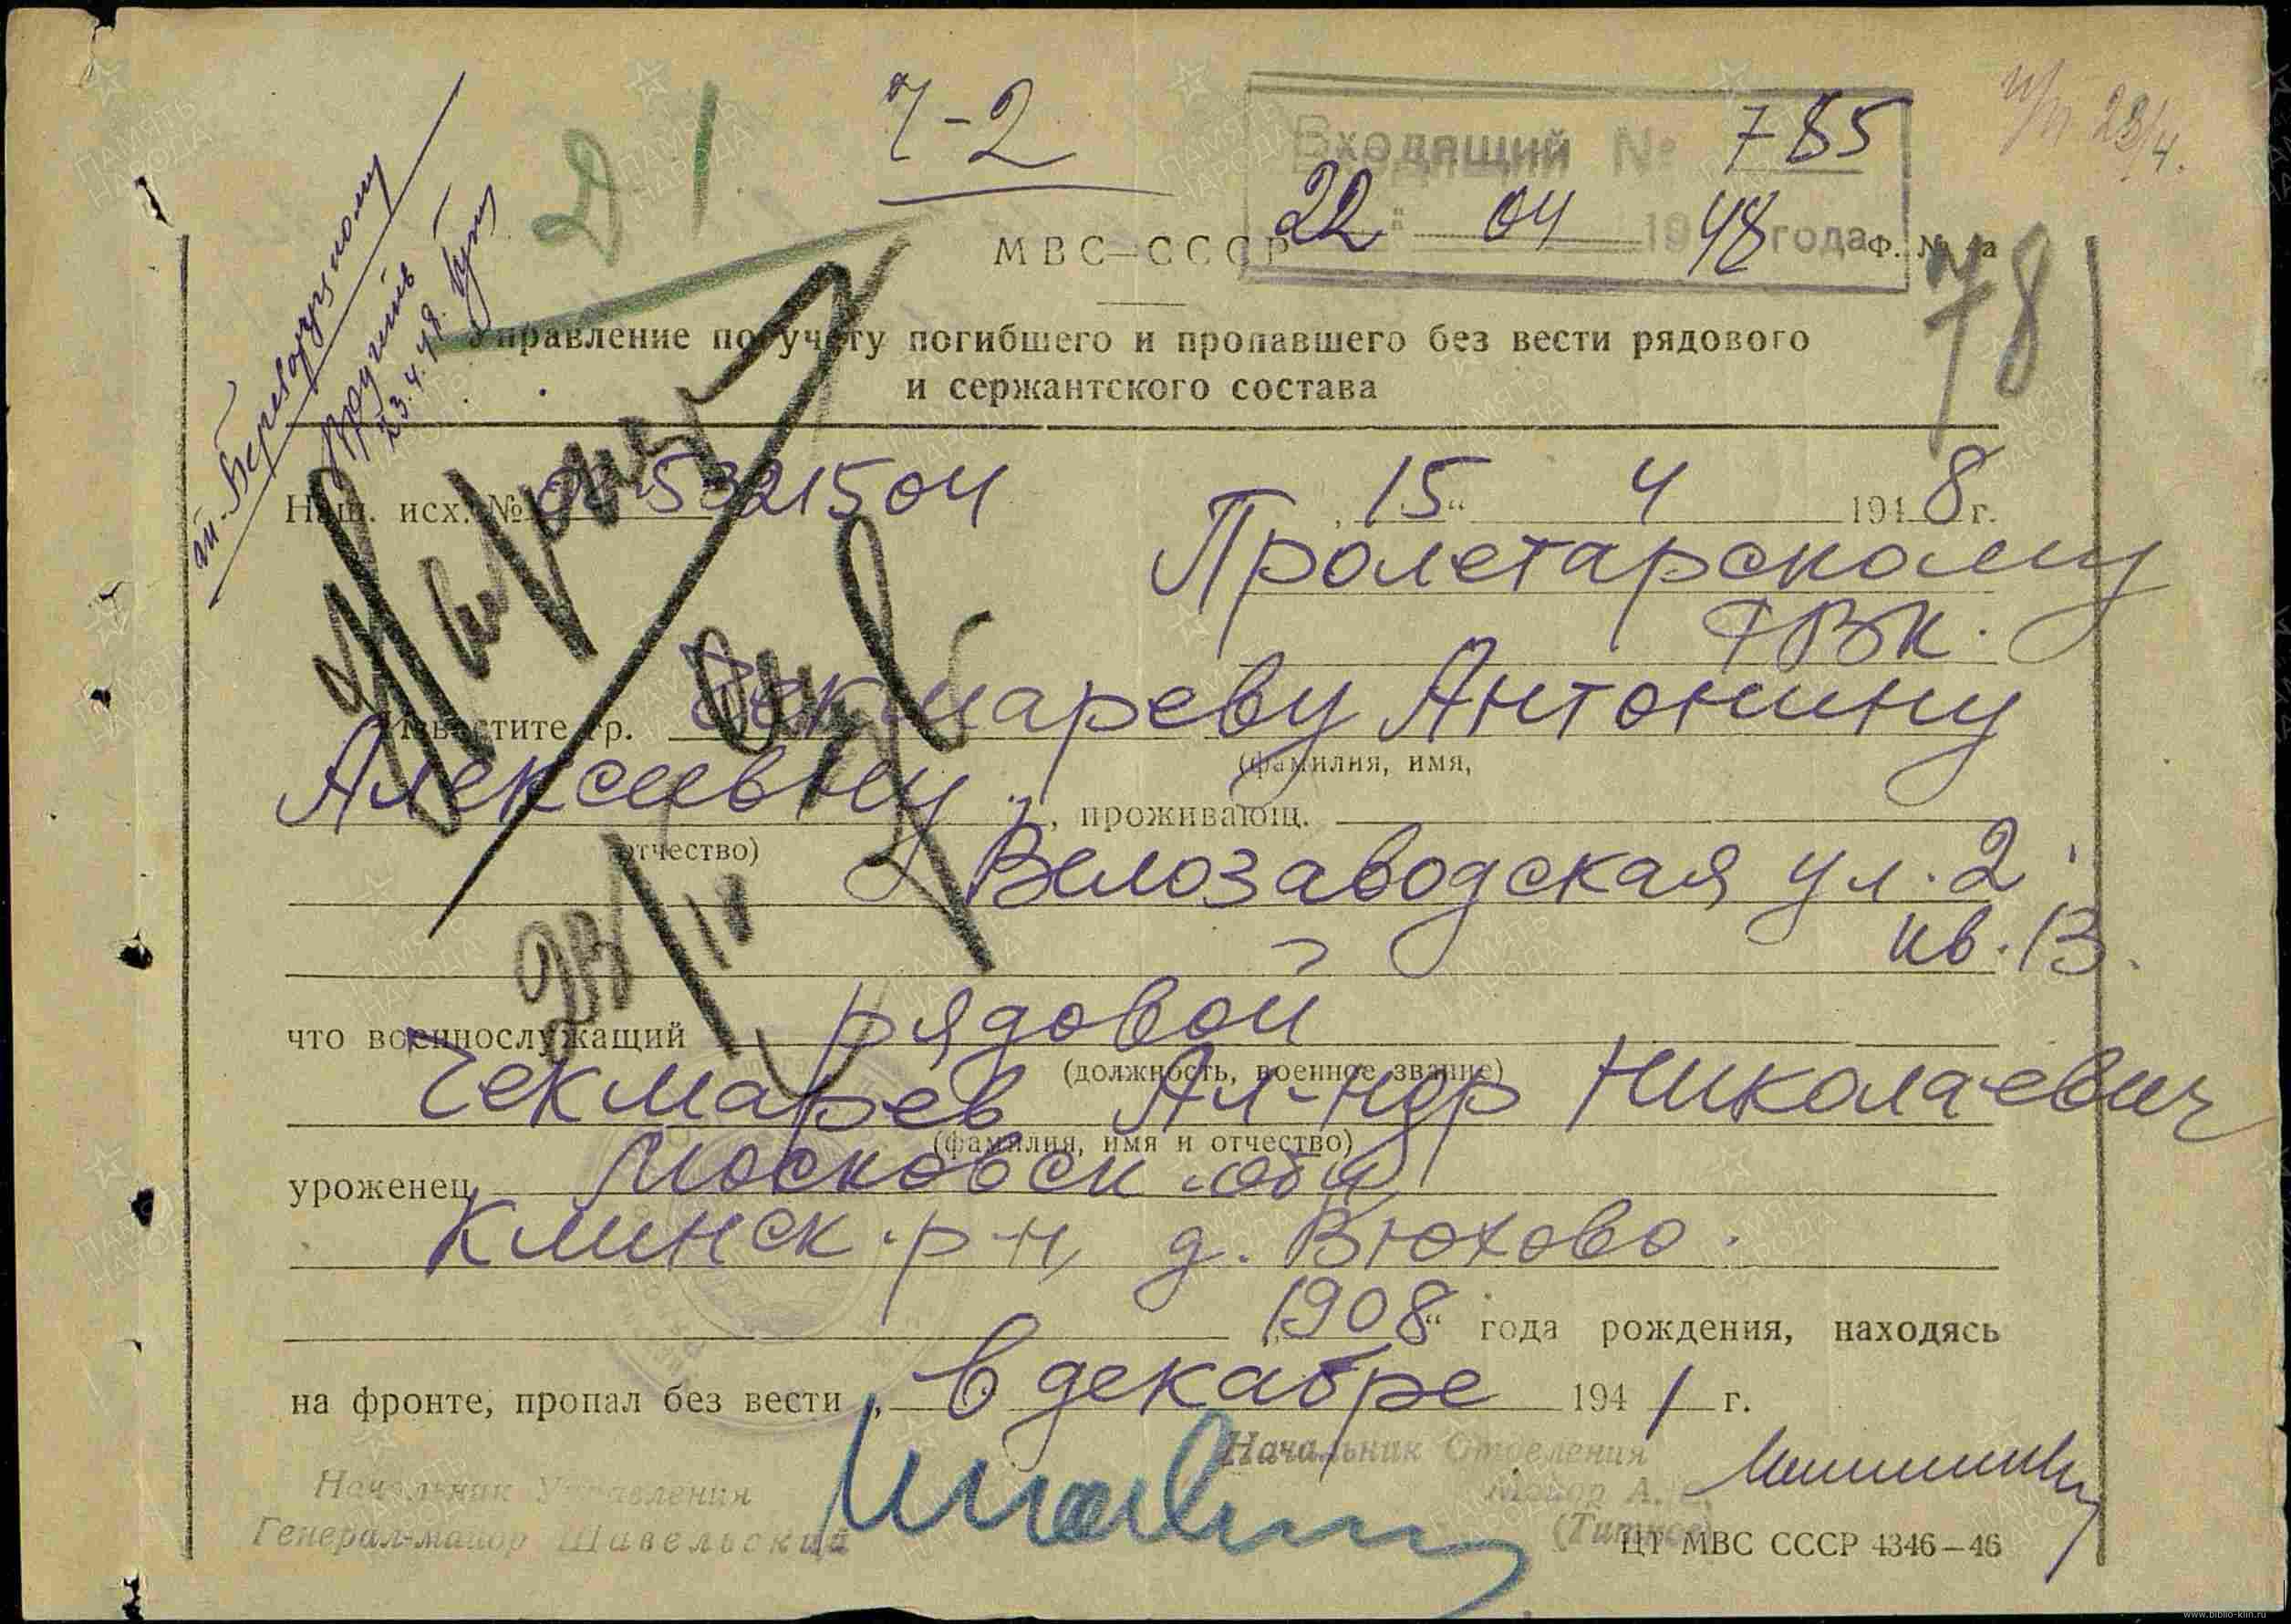 Ч-2
Д 1
Входящий № 785
22 " 04 1948 года
23/4.
МВС–СССР
78
Управление по учету погибшего и пропавшего без вести рядового
и сержантского состава
23.4.48.
Наш. исх. № 5321504
„15“ 4 1948 г.
Пролетарскому
РВК.
Известите гр. Чекмареву Антонину
(фамилия, имя,
Алексеевну, проживающ.
отчество)
Велозаводская ул. 2
кв. 13.
что военнослужащий рядовой
(должность, военное звание)
Чекмарев Ал-ндр Николаевич
(фамилия, имя и отчество)
уроженец Московск. обл
Клинск. р-н, д. Вюхово.
„1908“ года рождения, находясь
на фронте, пропал без вести „ в декабре 1941 г.
Начальник Управления
Генерал-майор Шавельский
Начальник Отделения
Майор А.
ЦТ МВС СССР 4346–46
www.biblio-klin.ru
ПАМЯТЬ НАРОДА